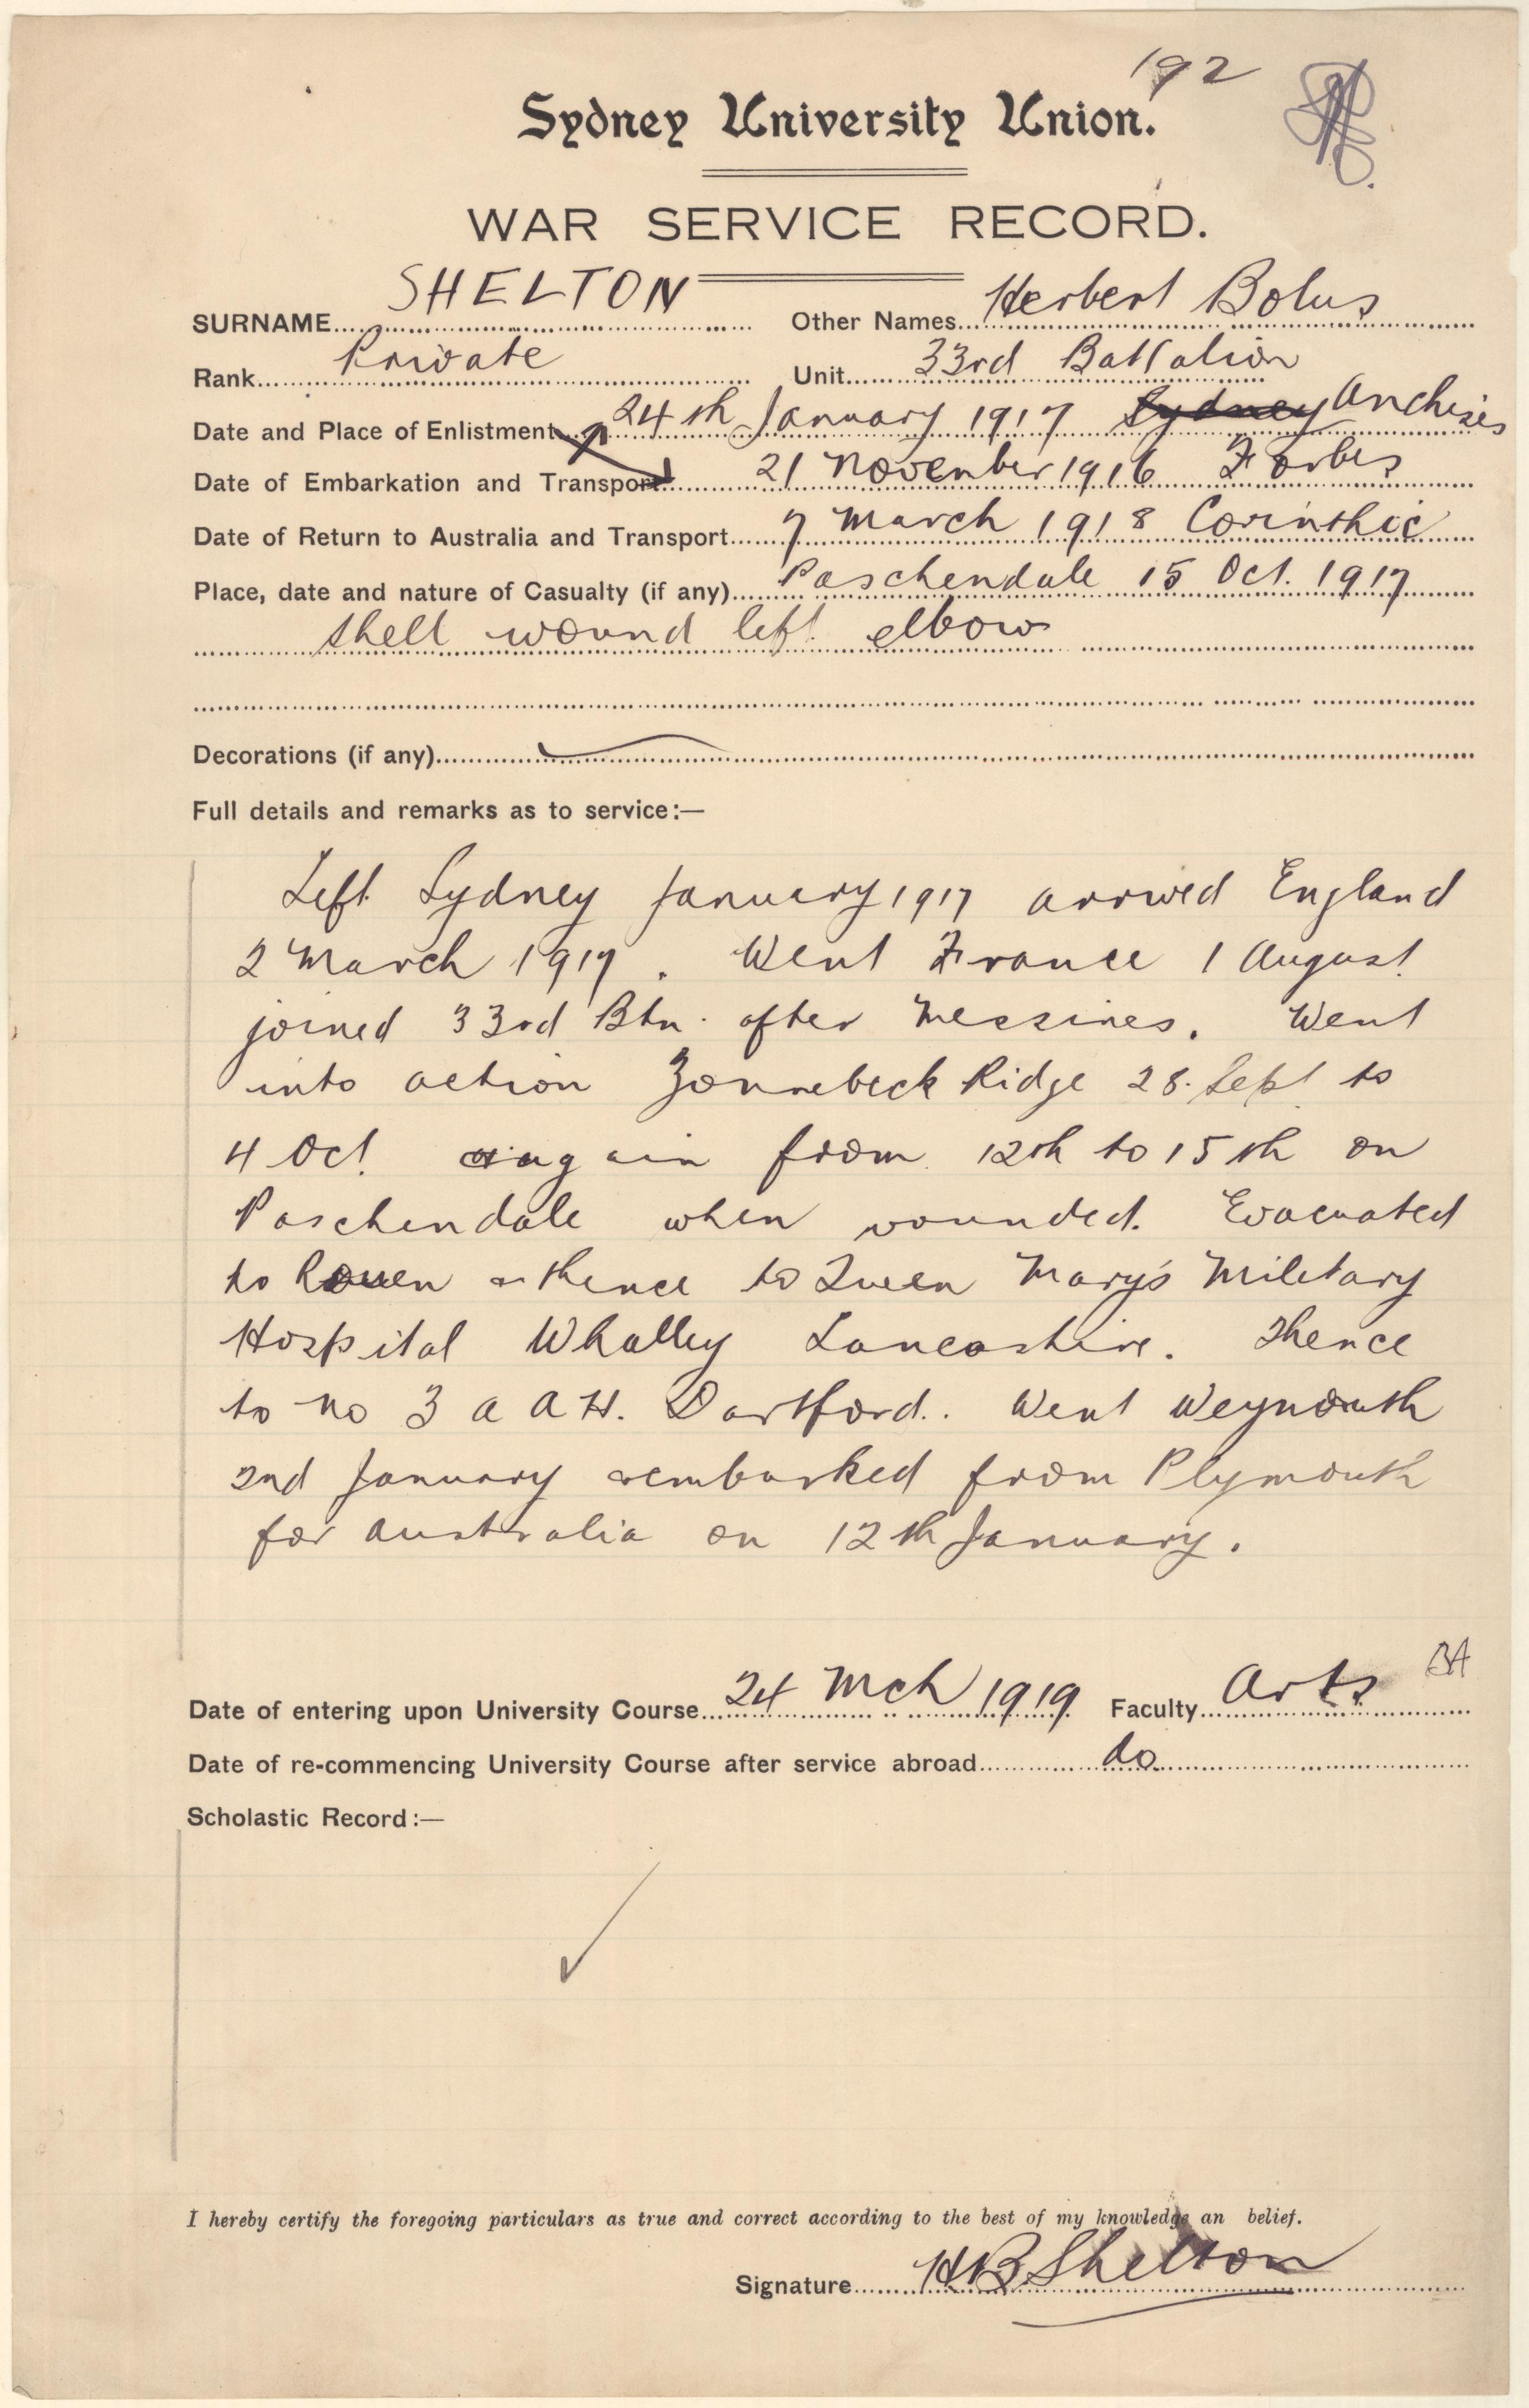 192
Sydney University Union.
WAR SERVICE RECORD.
SURNAME SHELTON Other Names Herbert Bolus
Rank Private Unit 33rd Battalion
Date and Place of Enlistment 24th January 1917 Sydney Anchises
Date of Embarkation and Transport 21 November 1916 Forbes
Date of Return to Australia and Transport 7 March 1918 Corinthic
Place, date and nature of Casualty (if any) Paschendale 15 Oct. 1917
shell wound left elbow
Decorations (if any)
Full details and remarks as to service:—
Left Sydney January 1917 arrived England
2 March 1917. Went France 1 August
joined 33rd Btn. after Messines. Went
into action Zonnebeck Ridge 28. Sept to
4 Oct. again from 12th to 15th on
Paschendale when wounded. Evacuated
to Rouen & thence to Queen Mary's Military
Hospital Whalley Lancashire. Thence
to No 3 A A H. Dartford. Went Weymouth
2nd January & embarked from Plymouth
for Australia on 12th January.
Date of entering upon University Course 24 Mch 1919 Faculty Arts BA
Date of re-commencing University Course after service abroad do
Scholastic Record:—
I hereby certify the foregoing particulars as true and correct according to the best of my knowledge an belief.
Signature HB Shelton